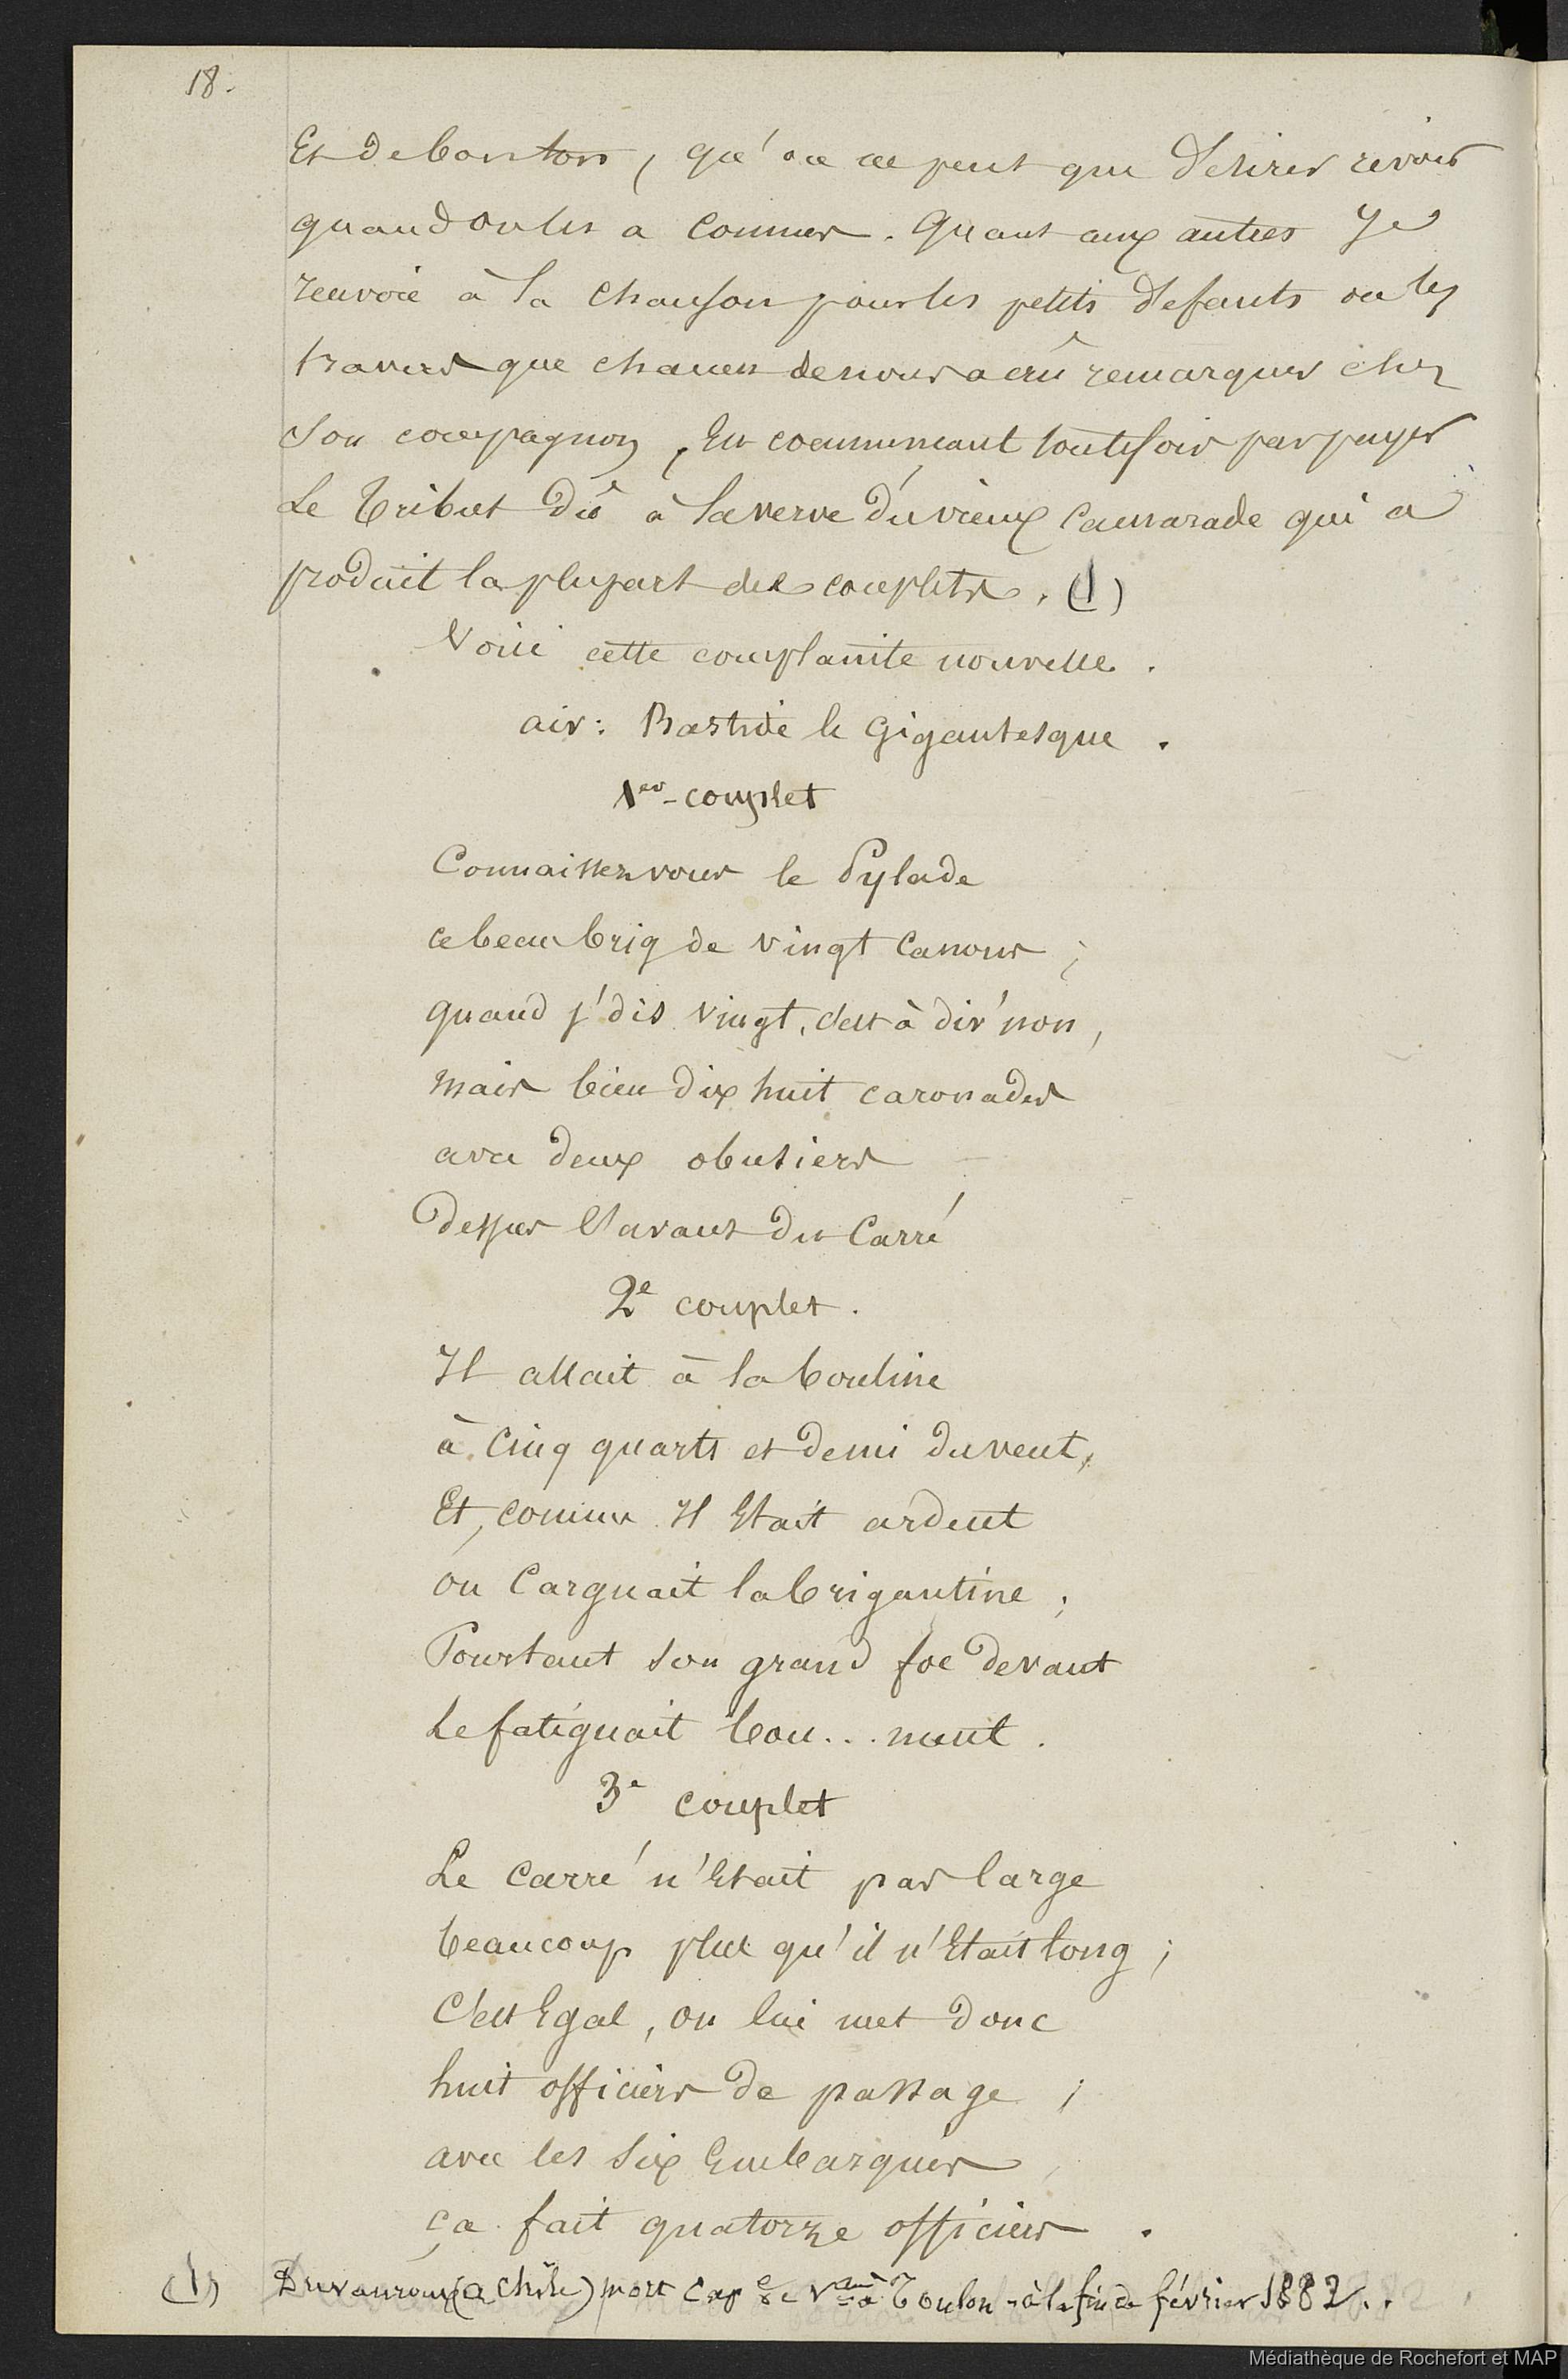 18.
Et de bon ton, qu'on ne peut que desirer revoir
quand on les a connus. Quant aux autres Je
renvoie à la chanson pour les petits defauts ou les
travers que chacun de nous a crû remarquer chez
son compagnon, En commencant toutefois par payer
Le tribut dû à la verve du vieux camarade qui a
produit la plupart des couplets. (1)
Voici cette complainte nouvelle.
air: Bastide le Gigantesque.
1er couplet
Connaissez vous le Pylade
ce beau brig de vingt canons;
quand j'dis vingt, c'est à dir' non,
mais bien dix huit caronades
avec deux obusiers
Dessus l'avant du Carré
2e couplet.
Il allait à la bouline
à cinq quarts et demi du vent,
Et, comme Il Etait ardent
on carguait la brigantine;
Pourtant son grand foc devant
Le fatiguait bou...ment.
3e couplet
Le Carré n'Etait pas large
beaucoup plus qu'il n'Etait long;
C'est Egal, on lui met donc
huit officiers de passage;
avec les six Embarqués
ça fait quatorze officiers.
(1) mort Cap e de Veau à Toulon - à la fin de février 1882..
Médiathèque de Rochefort et MAP